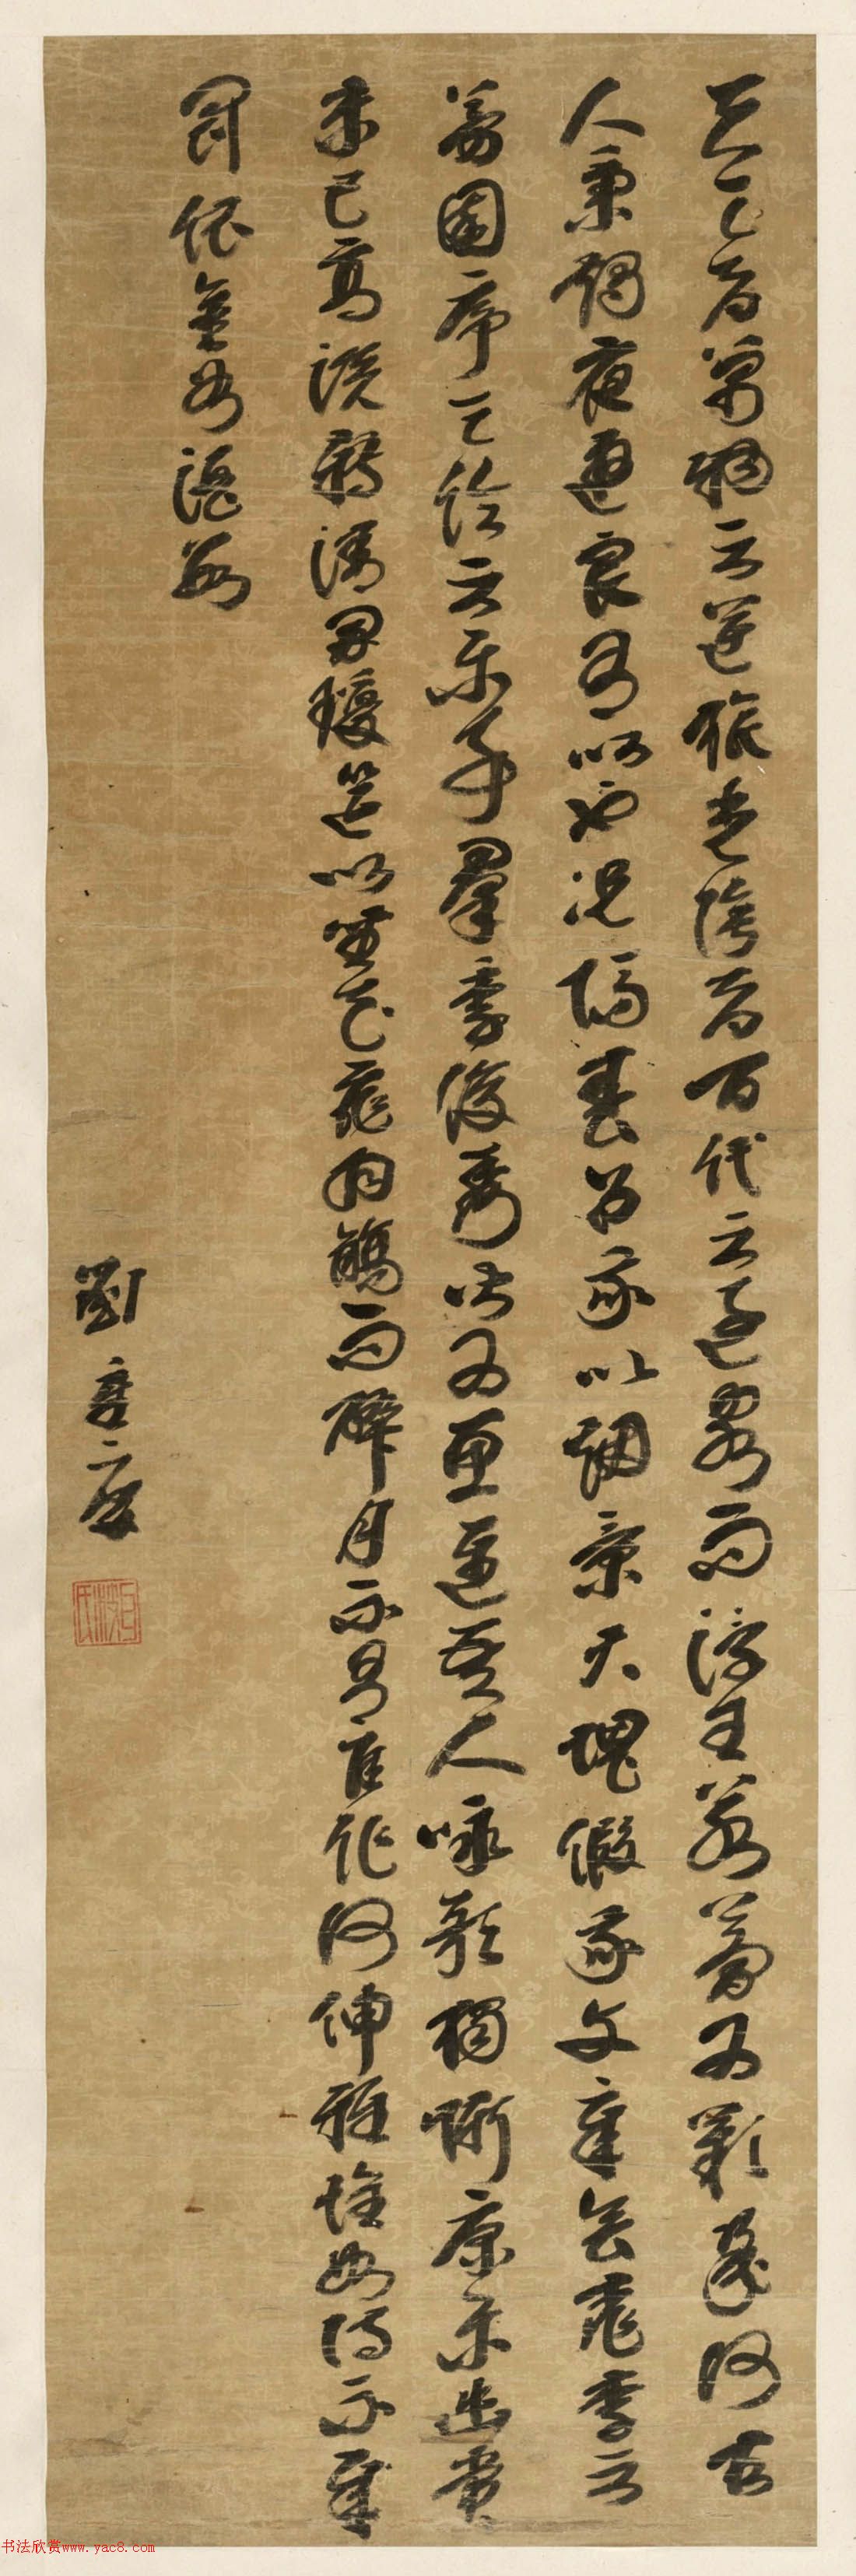 天地者萬物之逆旅光陰者百代之過客而浮生若夢為歡幾何古
人秉燭夜遊良有以也況陽春召我以煙景大塊假我文章會桃李之
芳園序天倫之樂事羣季俊秀皆為惠連吾人詠歌獨慚康樂幽賞
未已高談轉清開瓊筵以坐花飛羽觴而醉月不有佳作何伸雅懷如詩不成
罰依金谷酒數
劉重慶
书法欣赏www.yac8.com